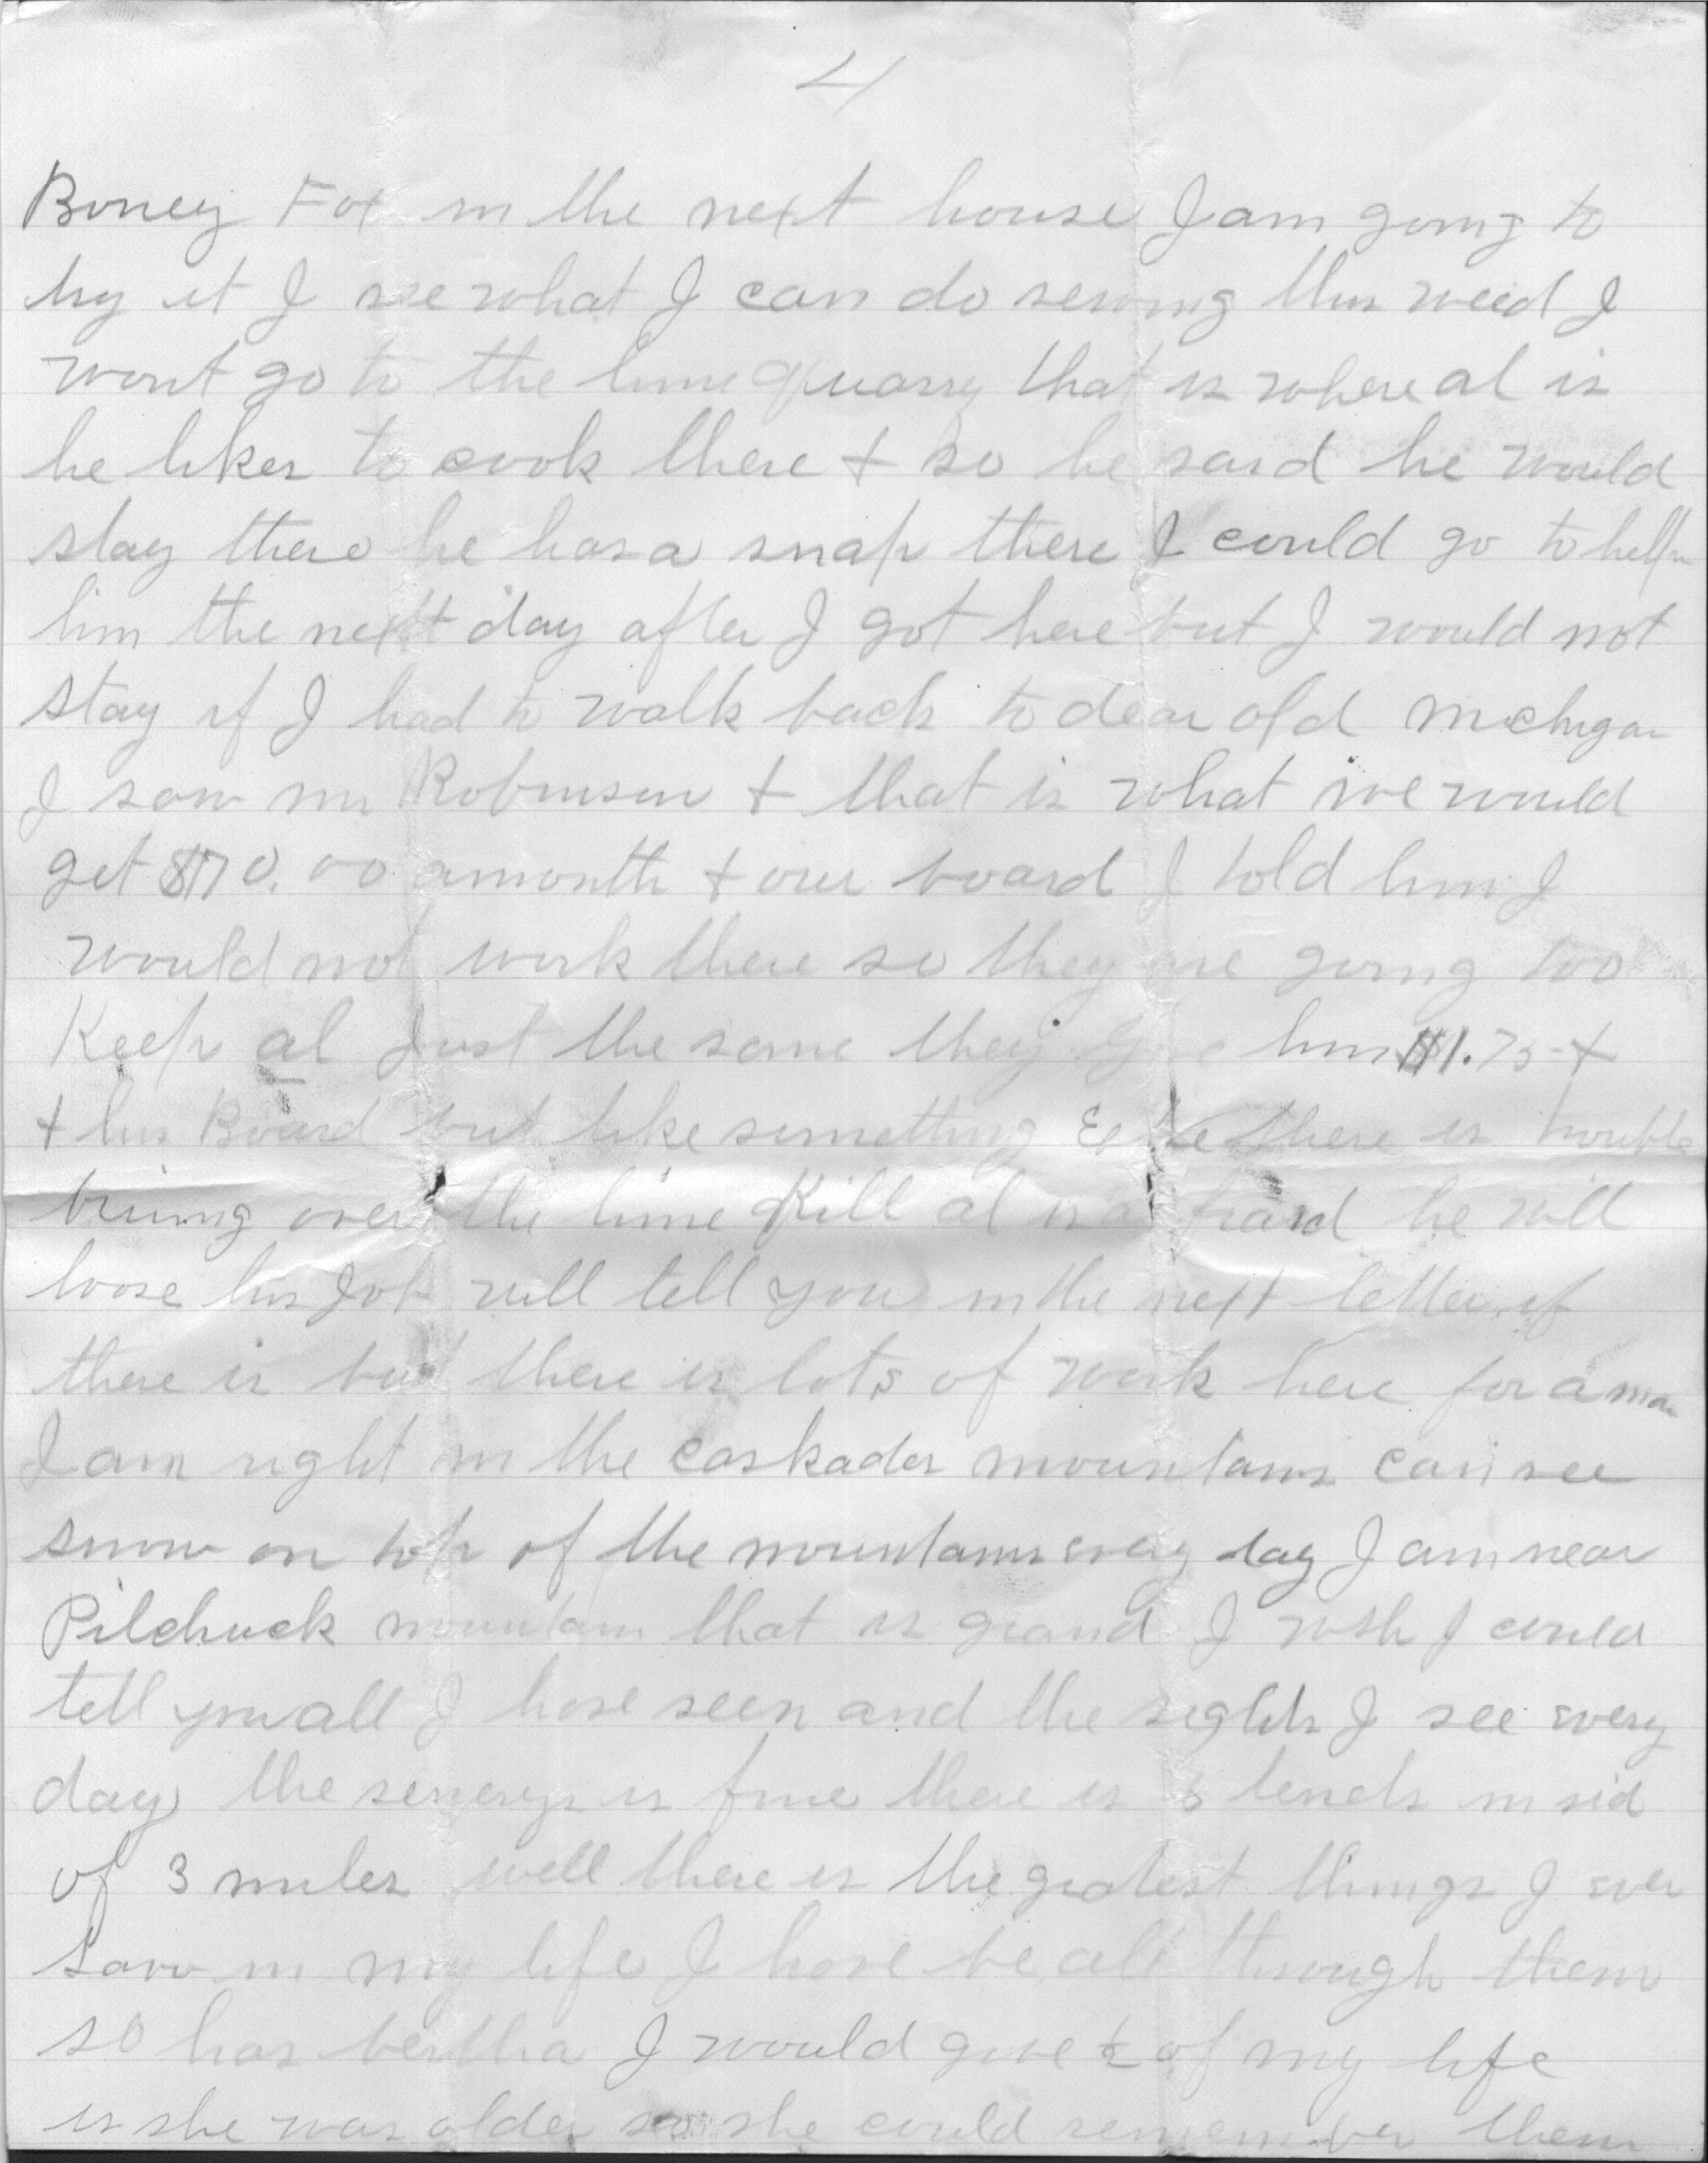 4
Boney Fox in the next house I am going to
try it I see what I can do sewing this weed I
wont go to the lime quarry that is where al is
he likes to cook there + so he said he would
stay there he has a snap there I could go to help
him the next day after I got here but I would not
stay if I had to walk back to dear old michigan
I saw mr Robinson + that is what we would
get $70.00 a month + our board I told him I
would not work there so they are going too
Keep al Just the same they give him $1.75 +
+ his Board but like something Else there is trouble
bruing over the lime Kill al is a fraid he will
loose his Job will tell you in the next letter if
there is but there is lots of work here for a man
I am right in the caskades mountains can see
snow on top of the mountains every day I am near
Pilchuck mountain that is grand I wish I could
tell you all I have seen and the sights I see every
day the senerys is fine there is in sid
of 3 miles well there is the gratest things I ever
saw in my life I have be all through them
so has bertha I would give ½ of my life
is she was older so she could remember them